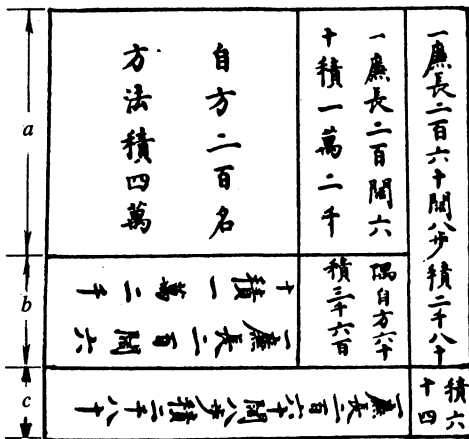 a
b
c
一廉長二百六十闊八步積二千八十
一廉長二百闊六
十積一萬二千
自方二百名
方法積四萬
隅自方六十
積三千六百
一廉長二百闊六
十積一萬二千
積六
十四
一廉長二百六十闊八步積二千八十